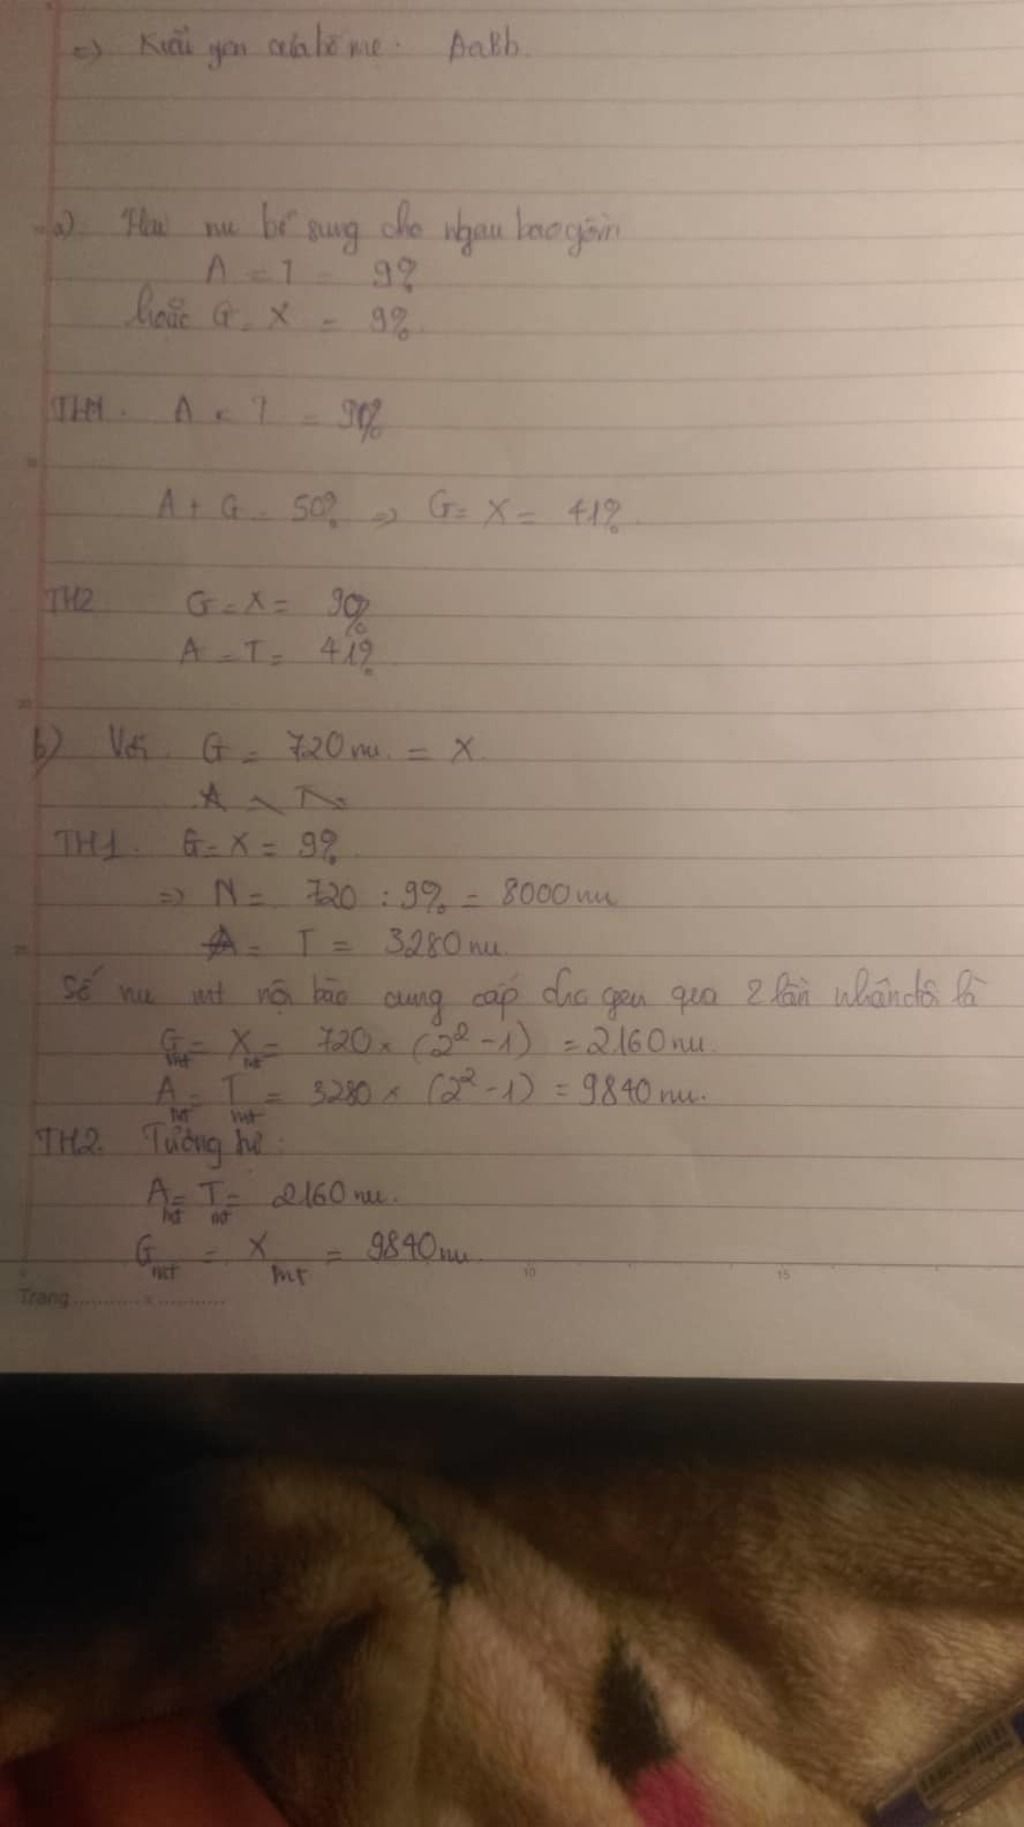 => Kiểu gen của bố mẹ: AaBb.
a) Hai nu bổ sung cho nhau bao gồm
A = T = 9%
hoặc G = X = 9%
TH1. A = T = 9%
A + G = 50% => G = X = 41%.
TH2 G = X = 9%
A = T = 41%
b) Với G = 720 nu. = X.
TH1. G = X = 9%
=> N = 720 : 9% = 8000 nu
A = T = 3280 nu.
Số nu mt nội bào cung cấp cho gen qua 2 lần nhân đôi là
Gmt = Xmt = 720 x (2² - 1) = 2160 nu.
Amt = Tmt = 3280 x (2² - 1) = 9840 nu.
TH2. Tương tự:
Amt = Tmt = 2160 nu.
Gmt = Xmt = 9840 nu.
10 15
Trang